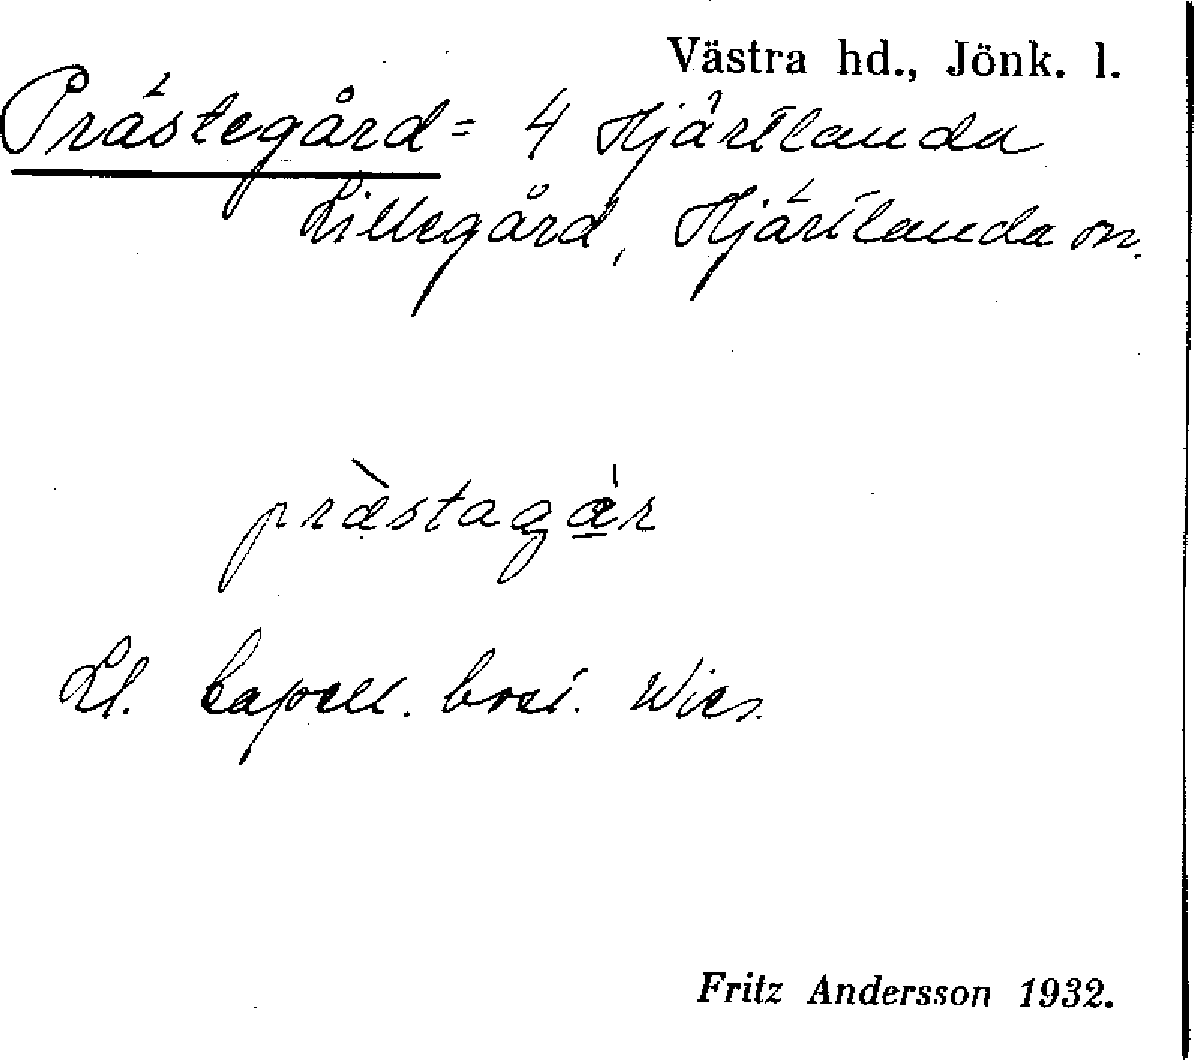 Västra hd., Jönk. l.
Prästegård = 4 Hjärtlanda
Lillegård, Hjärtlanda sn.
præ̀stagár
Ll. kapell. bost. Wies.
Fritz Andersson 1932.